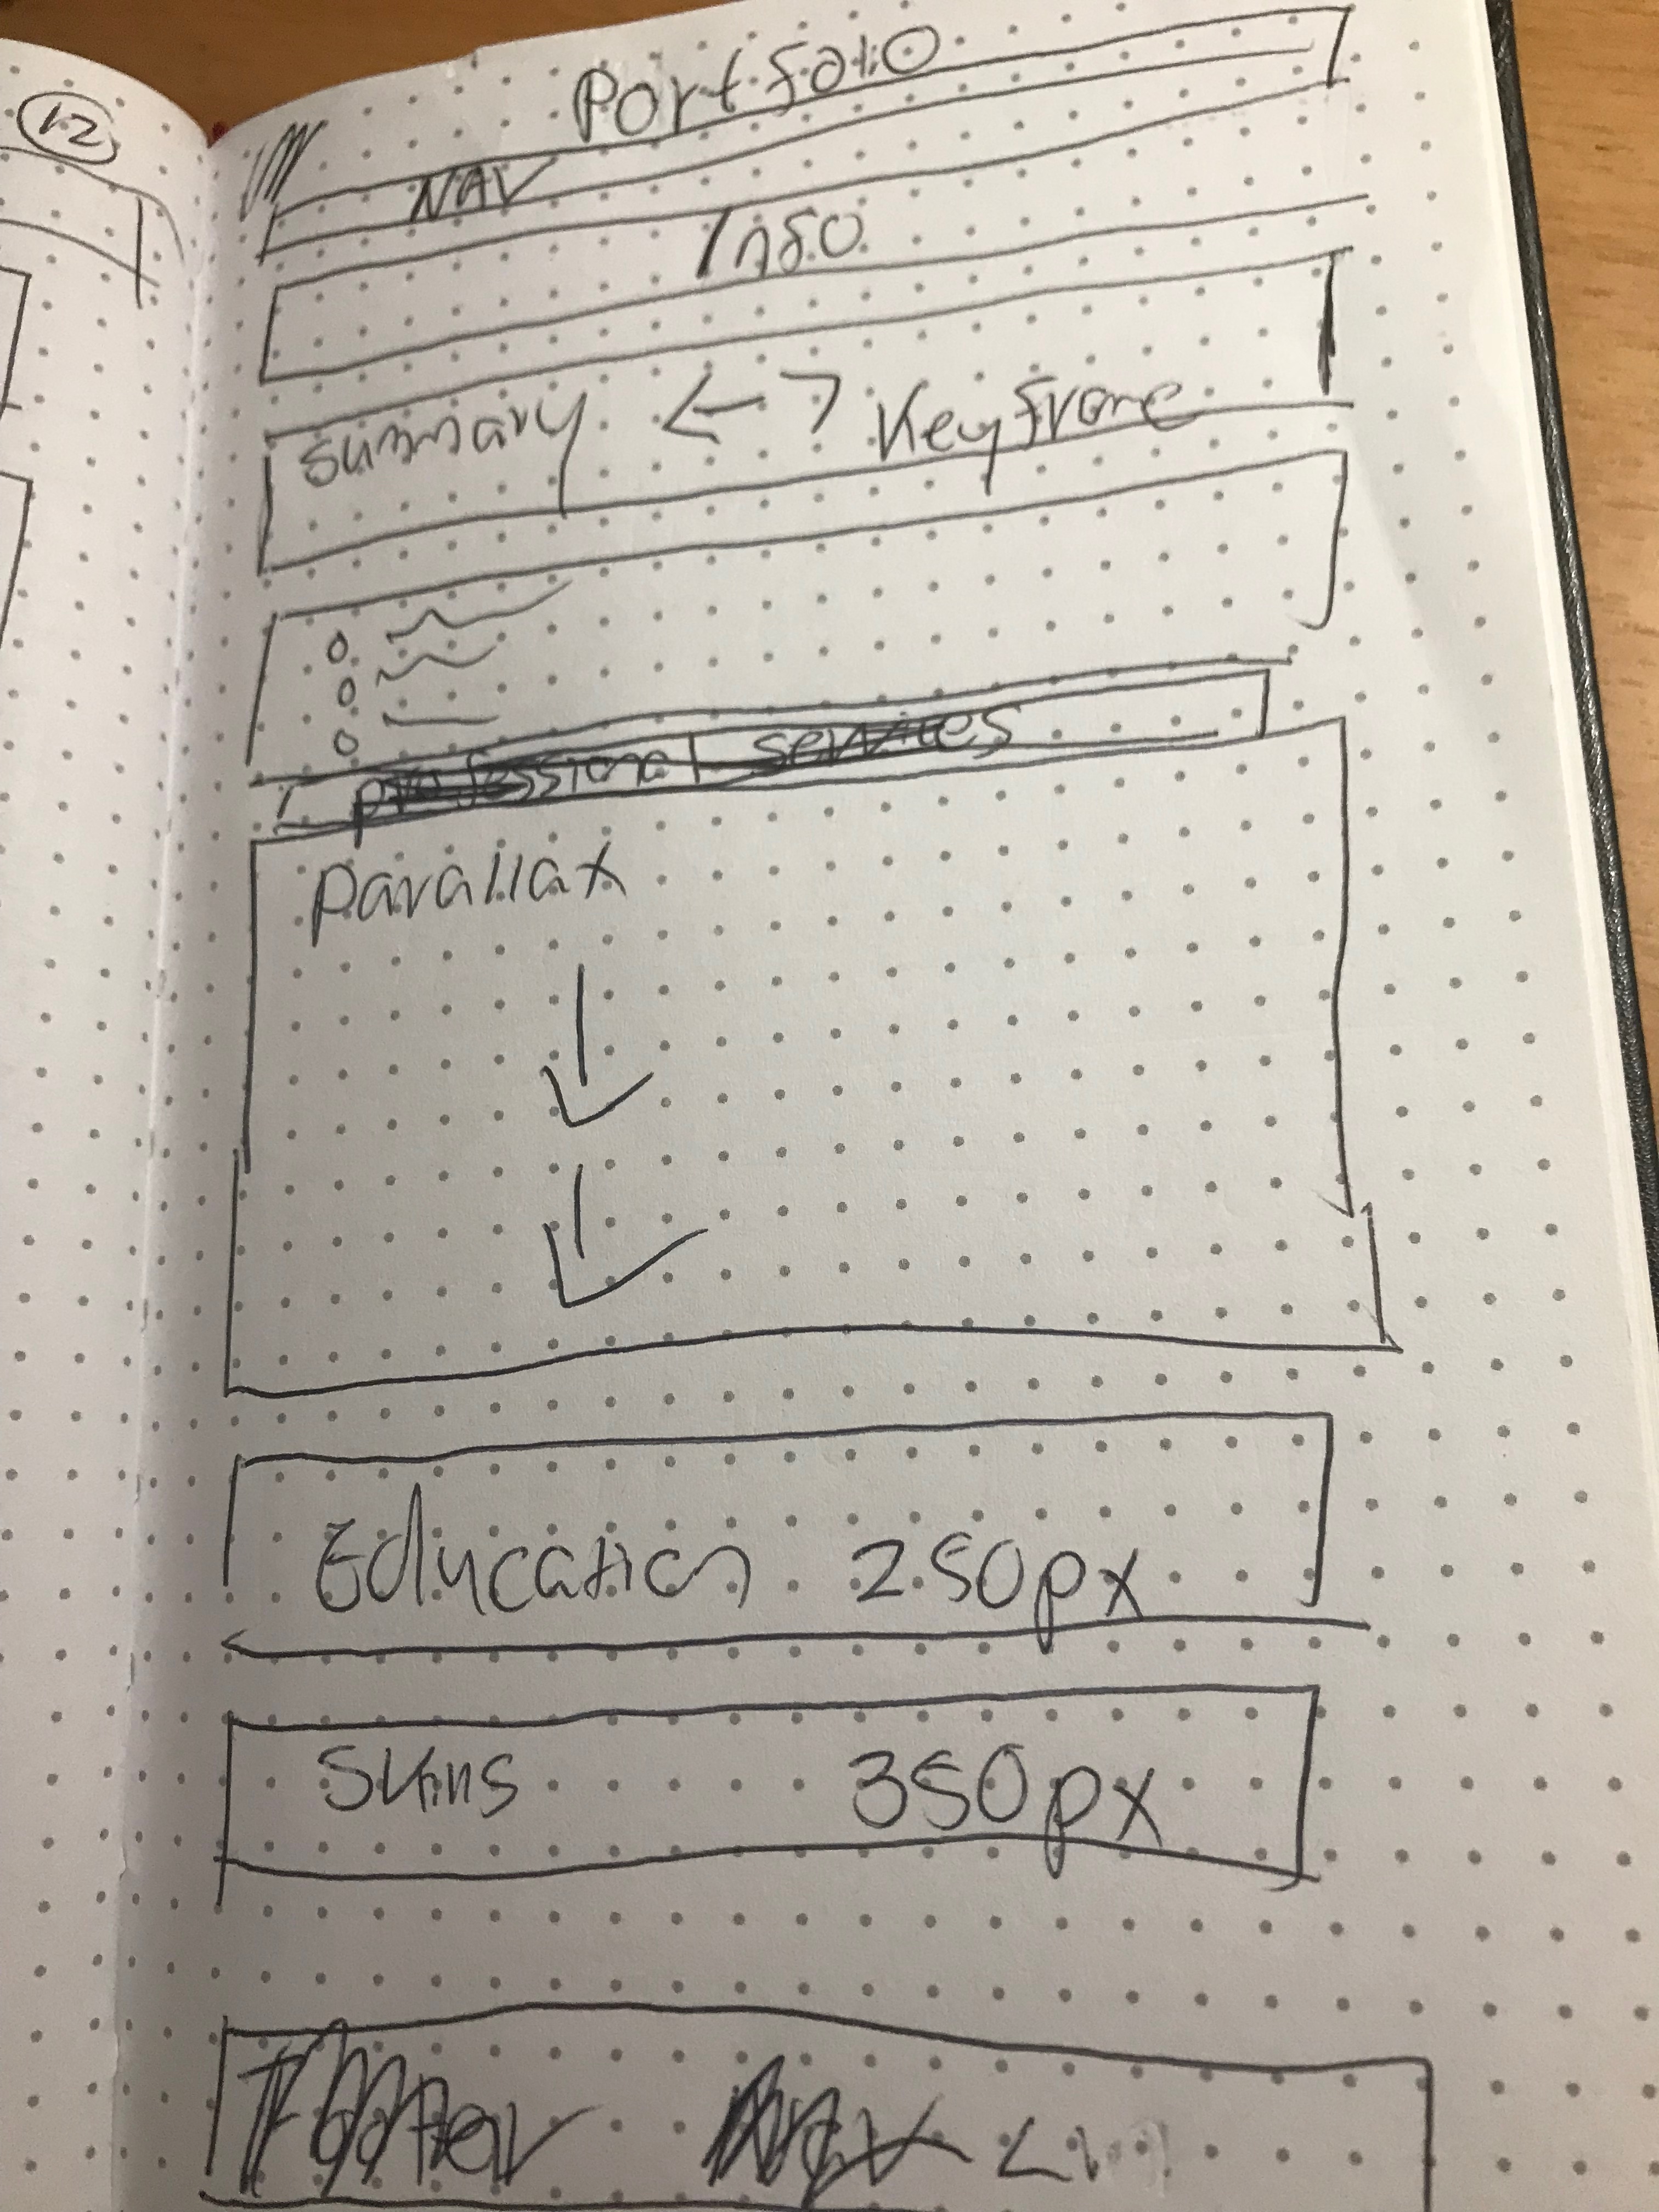 12
Portfolio
NAV
Info
Summary <-> Keyframe
professional services
parallax
Education 250px
Skills 350px
Footer